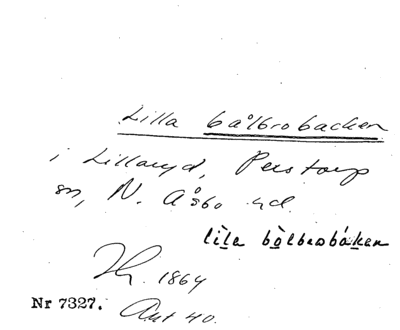 Lilla bålbrobacken
i Lillaryd, Perstorp
sn, N. Åsbo hd.
lìla bòlbrobákan
Th. 1864
Nr 7327. Ant 40.